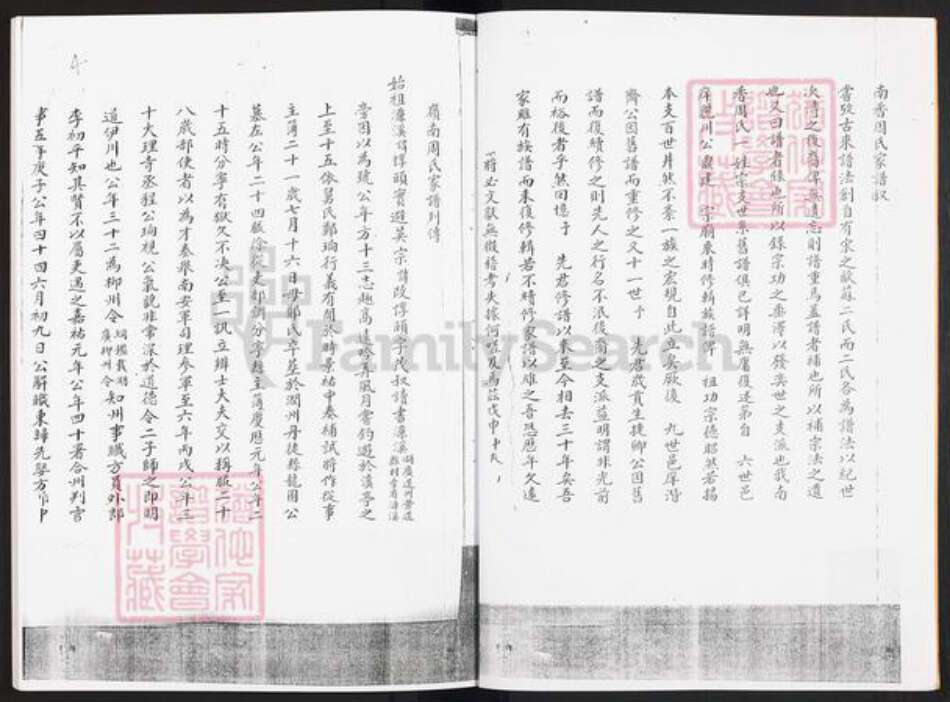 南香周氏家譜叙
嘗攷古來譜法創自有宋之歐蘇二氏而二氏各為譜法以紀世
次詩之後裔俾無遺忘則譜重焉蓋譜者補也所以補宗法之遺
也又曰譜者錄也所以錄宗功之垂澤以發奕世之支派也我南
香周氏一姓宗支世系舊譜俱已詳明無庸復述第自 六世邑
庠 川公 建 宗廟兼時修輯族譜俾 祖功宗德昭然若揭
本支百世井然不紊一族之宏規自此立矣厥後 九世邑庠階
齊公因舊譜而重修之又十一世 先君歲貢生捷卿公因舊
譜而復續修之則先人之行名不泯後裔之支派益明謂非光前
而裕後者乎然回憶予 先君修譜以來至今相去三十年矣吾
家雖有族譜而未復修輯若不精修家譜以維之吾恐歷年久遠
將必文獻無徵稽考失據何 及焉 戊申
4
嶺南周氏家譜列傳
始祖濂溪諱惇頤實避英宗諱改惇頤字茂叔讀書濂溪湖廣道州營道縣村旁有濂溪
旁因以為號公年方十三志趣高遠吟弄風月嘗釣遊於溪亭之
上至十五依舅氏鄭珦行義有聞於時景祐中奏補試將作監事
主簿二十一歲七月十六日母鄭氏卒葬於潤州丹徒縣龍圖公
墓左公年二十四服除從吏部調分寧縣主簿慶歷元年公年二
十五時分寧有獄久不決公至一訊立辨士大夫交以稱服二十
八歲部使者以為才奏舉南安軍司理參軍至六年丙戌公年三
十大理寺丞程公珦視公氣貌非常深於道德令二子師之即明
道伊川也公年三十二為郴州令綱鑑載湖廣郴州令知州事職方員外郎
李初平知其賢不以屬吏遇之嘉祐元年公年四十署合州判官
事五年庚子公年四十四六月初九日公解職東歸先舉方作中
FamilySearch